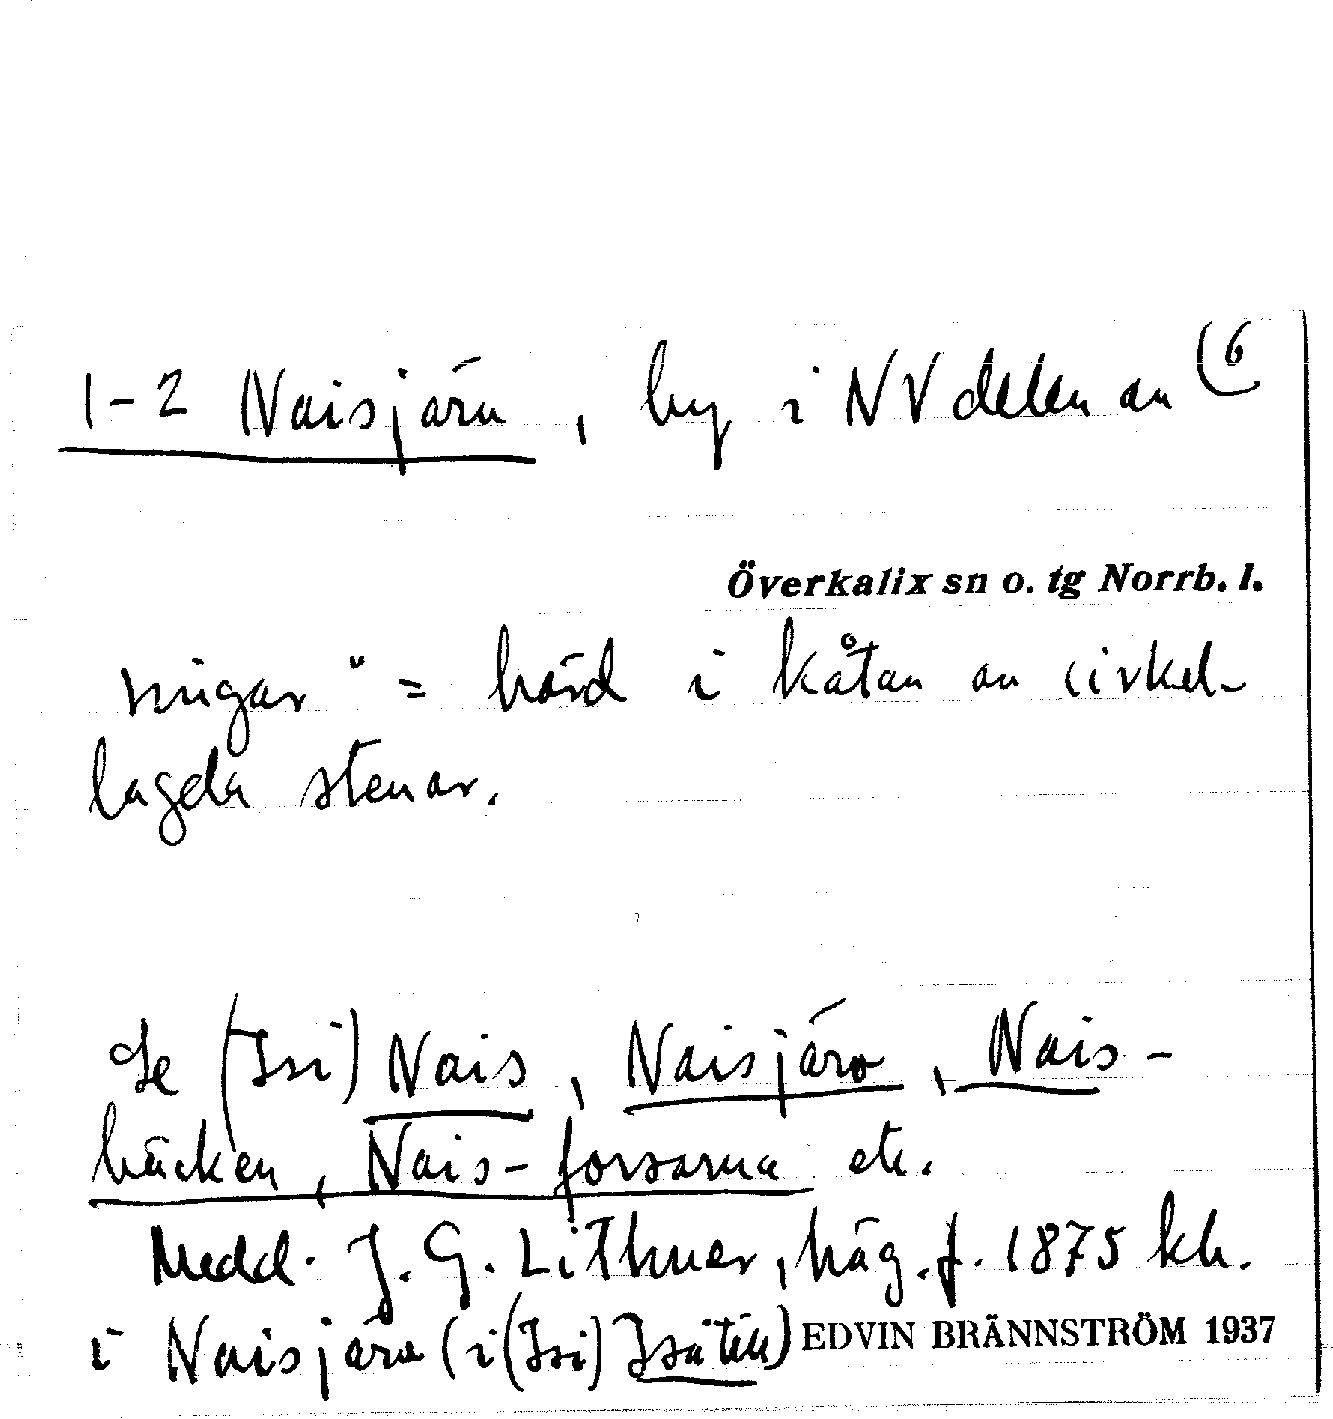 1-2 Naisjärv, by i NV delen av (6
Överkalix sn o. tg Norrb. l.
ningar" = härd i kåtan av cirkel-
lagda stenar.
Se (Isi) Nais, Naisjärv, Nais-
bäcken, Nais-forsarna etc.
Medd. J. G. Lithner, häg. f. 1875 kh.
i Naisjärv (i (Isi)
EDVIN BRÄNNSTRÖM 1937